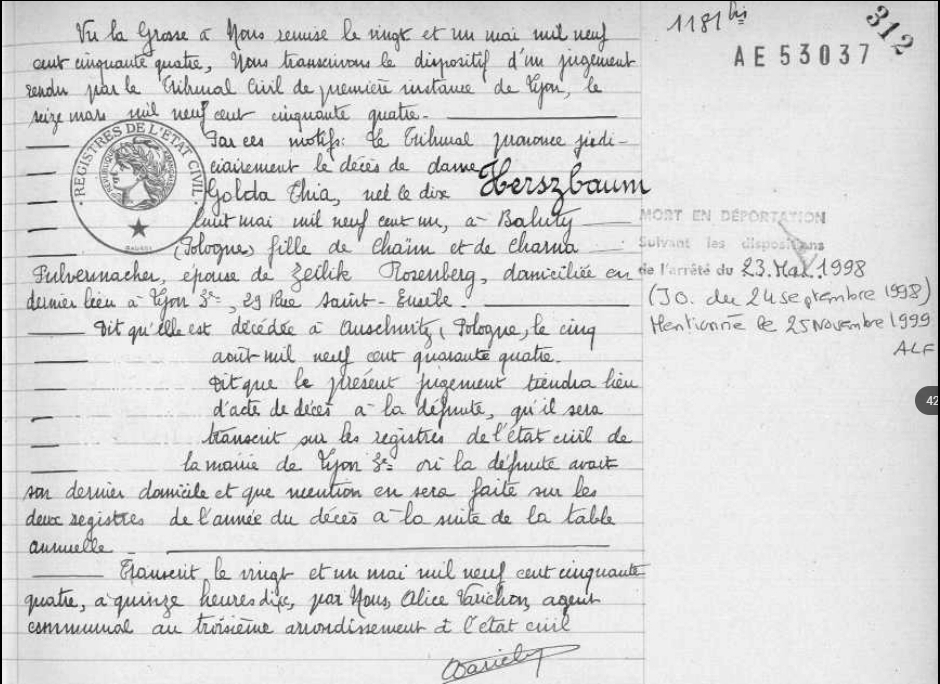 1181 bis
312
AE 53037
Vu la Grosse à Nous remise le vingt et un mai mil neuf
cent cinquante quatre, Nous transcrivons le dispositif d'un jugement
rendu par le Tribunal Civil de première instance de Lyon, le
seize mars mil neuf cent cinquante quatre.
Par ces motifs: Le Tribunal prononce judi-
ciairement le décès de dame Herszbaum
Golda Thia, née le dix
huit mai mil neuf cent un, à Baluty
(Pologne) fille de Chaïm et de Charna
Pulvermacher, épouse de Zeilik Rosenberg, domiciliée en
dernier lieu à Lyon 3e, 29 Rue Saint-Eusèbe.
Dit qu'elle est décédée à Auschwitz, Pologne, le cinq
août mil neuf cent quarante quatre.
Dit que le présent jugement tiendra lieu
d'acte de décès à la défunte, qu'il sera
transcrit sur les registres de l'état civil de
la mairie de Lyon 3e où la défunte avait
son dernier domicile et que mention en sera faite sur les
deux registres de l'année du décès à la suite de la table
annuelle.
Transcrit le vingt et un mai mil neuf cent cinquante
quatre, à quinze heures dix, par Nous, Alice Varichon, agent
communal au troisième arrondissement à l'état civil
REGISTRES DE L'ÉTAT CIVIL
RÉPUBLIQUE FRANÇAISE
MORT EN DÉPORTATION
Suivant les dispositions
de l'arrêté du 23 Mai 1998
(JO. du 24 septembre 1998)
Mentionné le 25 Novembre 1999
ALF
42